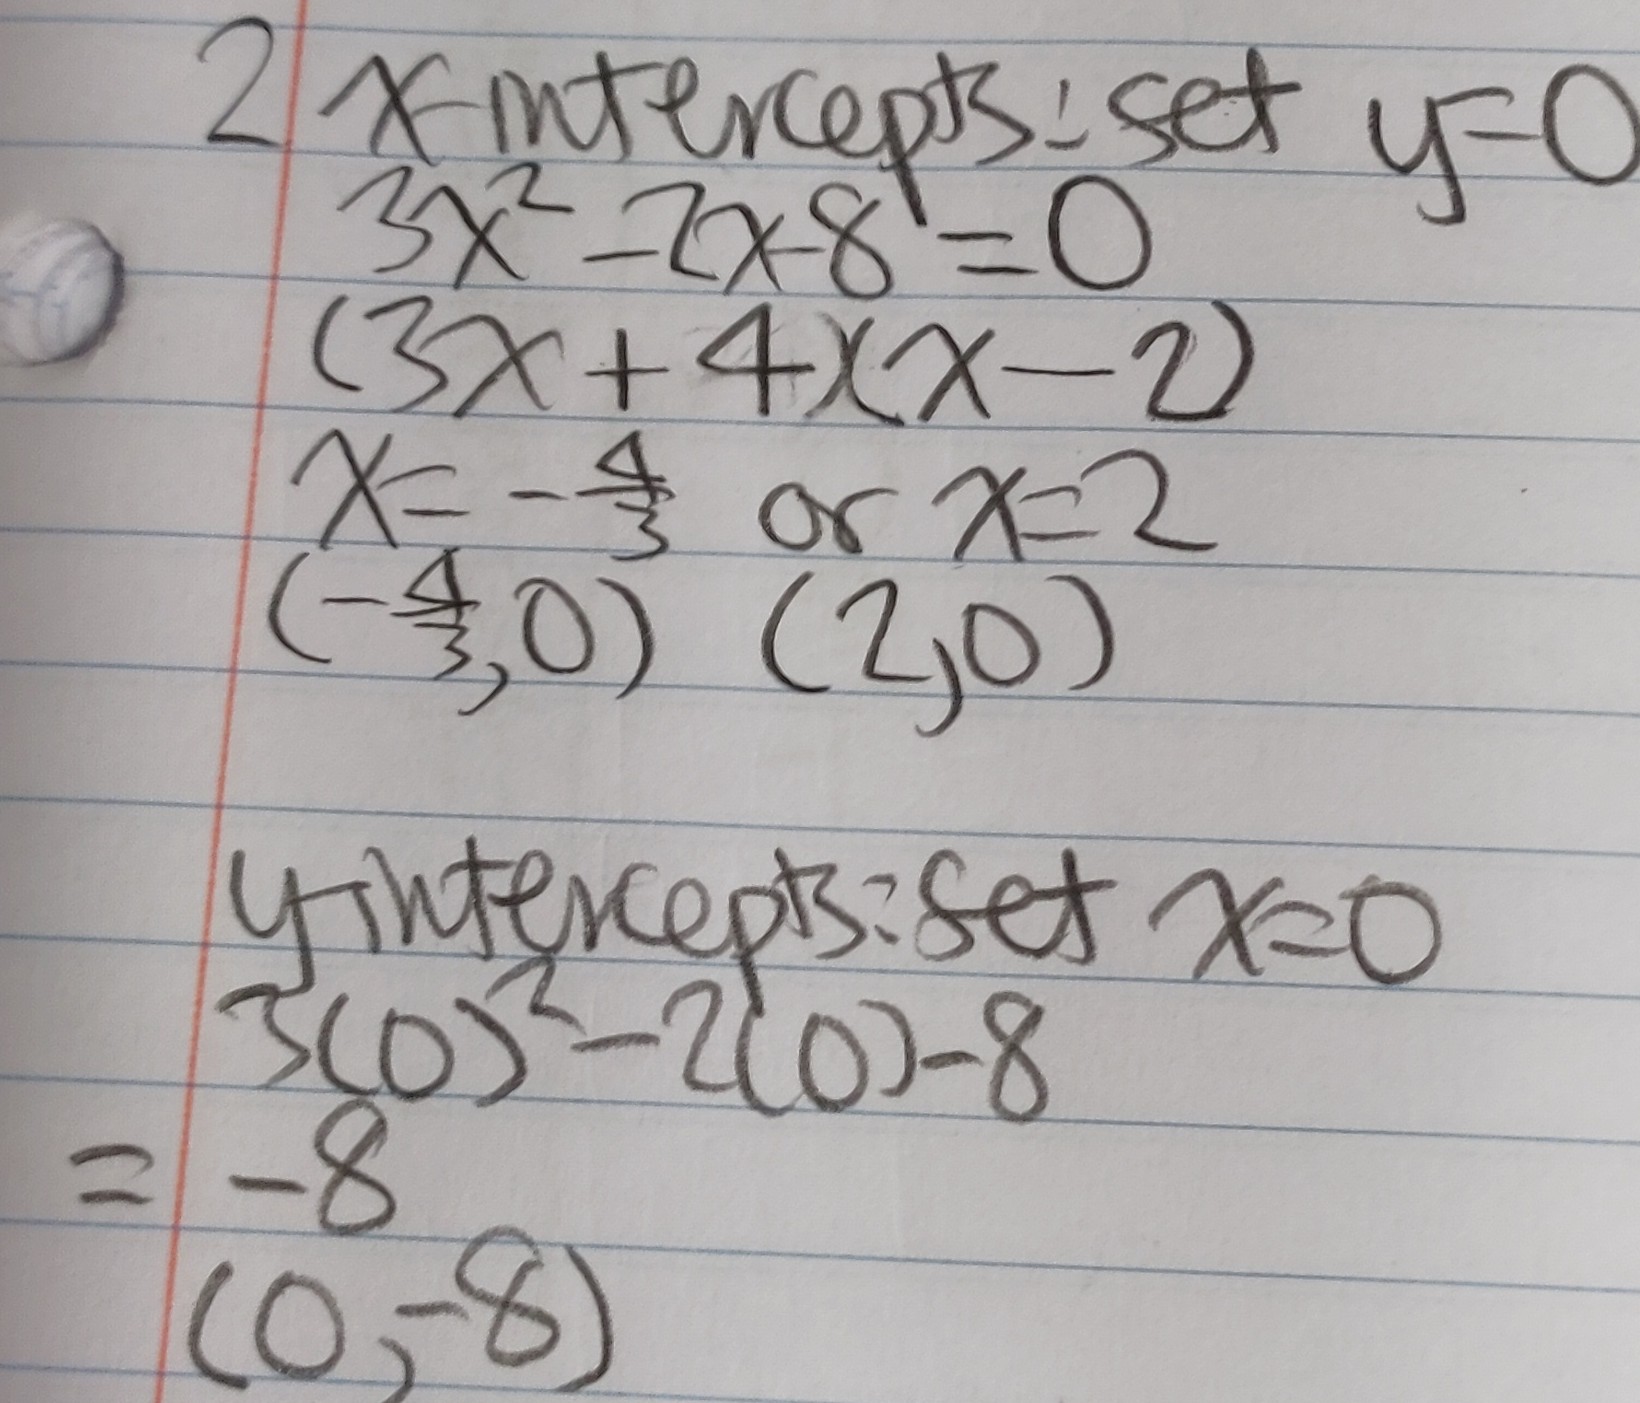 2 x-intercepts: set y=0
3x² -2x-8=0
(3x+4)(x-2)
x= -4/3 or x=2
(-4/3,0) (2,0)
y-intercepts: set x=0
3(0)²-2(0)-8
= -8
(0,-8)